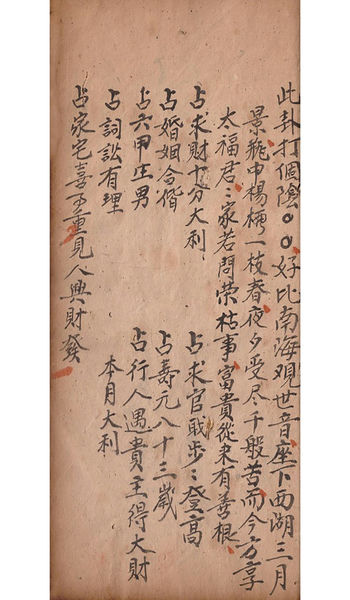 此卦打個陰〇〇好比南海观世音座下西湖三月
景瓶中楊柳一枝春夜夕受尽千般苦而今方享
太福君〻家若問荣枯事富貴從来有善根
占求財十分大利
占求官戝步〻登高
占婚姻合偕
占壽元八十三歲
占六甲庄男
占行人遇貴主得大財
占詞訟有理
本月大利
占家宅喜重見人興財發